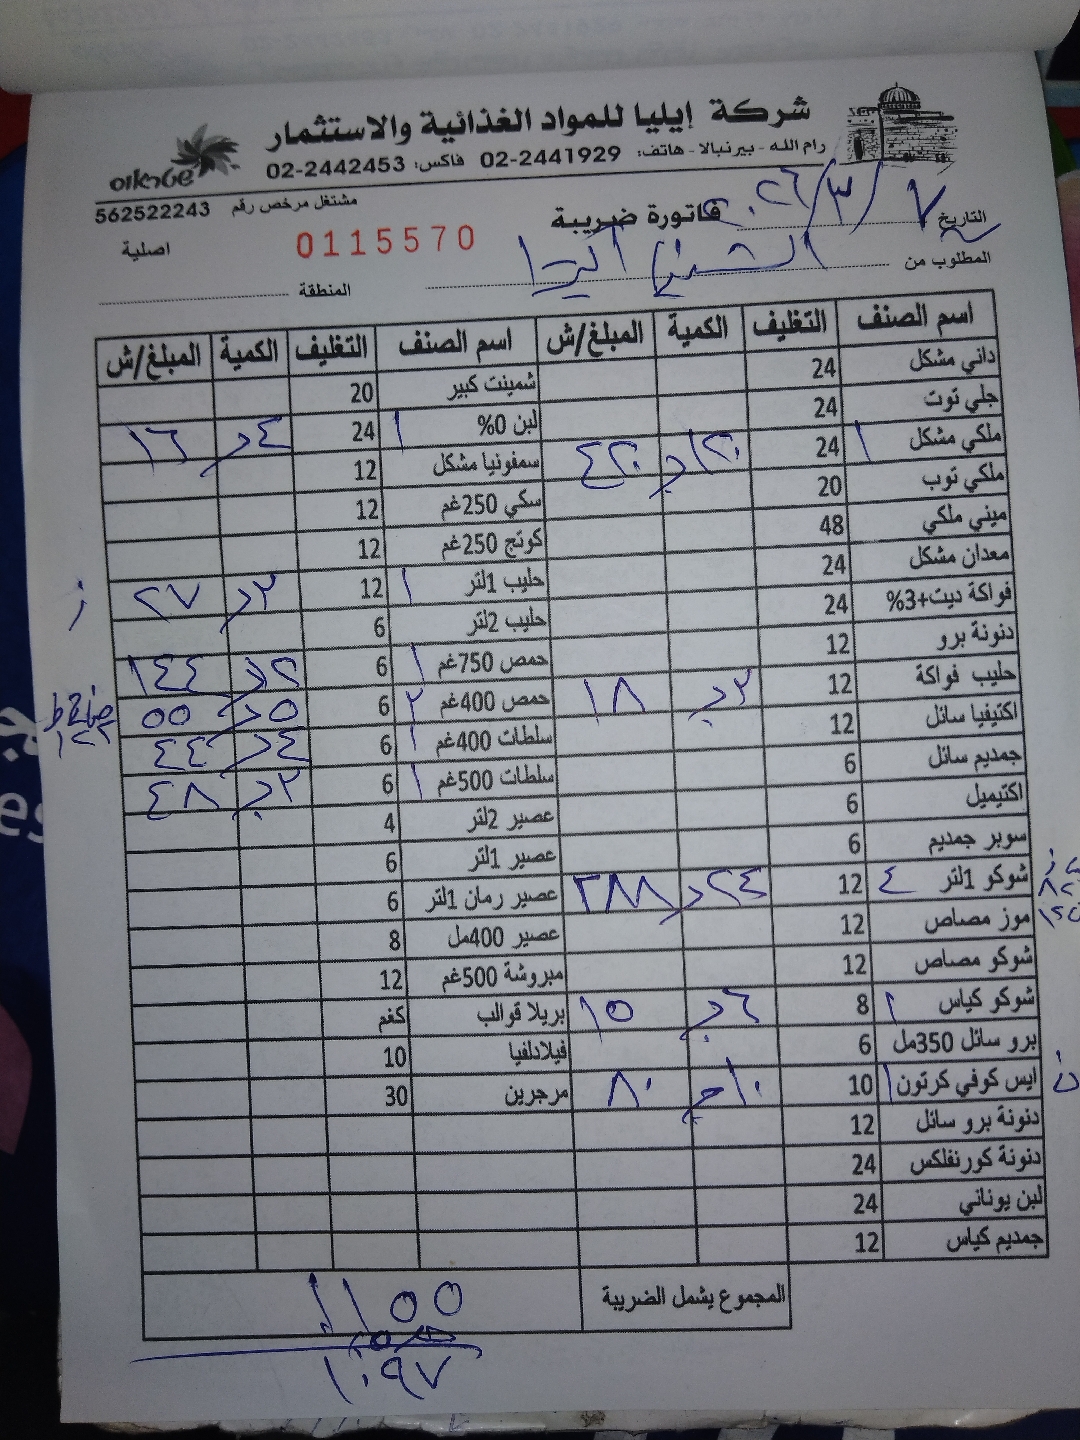 شركة إيليا للمواد الغذائية والاستثمار
رام الله - بيرنبالا - هاتف: 02-2441929 فاكس: 02-2442453
مشتغل مرخص رقم 562522243
التاريخ ٧/٣/٢٠٢٦ فاتورة ضريبة
0115570 اصلية
المطلوب من
المنطقة
اسم الصنف التغليف الكمية المبلغ/ش اسم الصنف التغليف الكمية المبلغ/ش
داني مشكل 24 شمينت كبير 20
جلي توت 24 لبن 0% ١ 24 ٤ ١٦
ملكي مشكل ١ 24 سمفونيا مشكل 12
ملكي توب 20 سكي 250غم 12
ميني ملكي 48 كوتج 250غم 12
معدان مشكل 24 حليب 1لتر ١ 12 ٢٧
فواكة ديت+3% 24 حليب 2لتر 6
دنونة برو 12 حمص 750غم ١ 6 ١٤٤
حليب فواكة 12 ١٨ حمص 400غم ٢ 6 ٥ ٥٥
اكتيفيا سائل 12 سلطات 400غم ١ 6 ٤ ٤٤
جمديم سائل 6 سلطات 500غم ١ 6 ٤٨
اكتيميل 6 عصير 2لتر 4
سوبر جمديم 6 عصير 1لتر 6
شوكو 1لتر ٤ 12 ٢٤ ٢٨٨ عصير رمان 1لتر 6
موز مصاص 12 عصير 400مل 8
شوكو مصاص 12 مبروشة 500غم 12
شوكو كياس ١ 8 ٦ ١٥ بريلا قوالب كغم
برو سائل 350مل 6 فيلادلفيا 10
ايس كوفي كرتون ١ 10 ١٠ ٨٠ مرجرين 30
دنونة برو سائل 12
دنونة كورنفلكس 24
لبن يوناني 24
جمديم كياس 12
المجموع يشمل الضريبة ١١٥٥
١٠٩٧